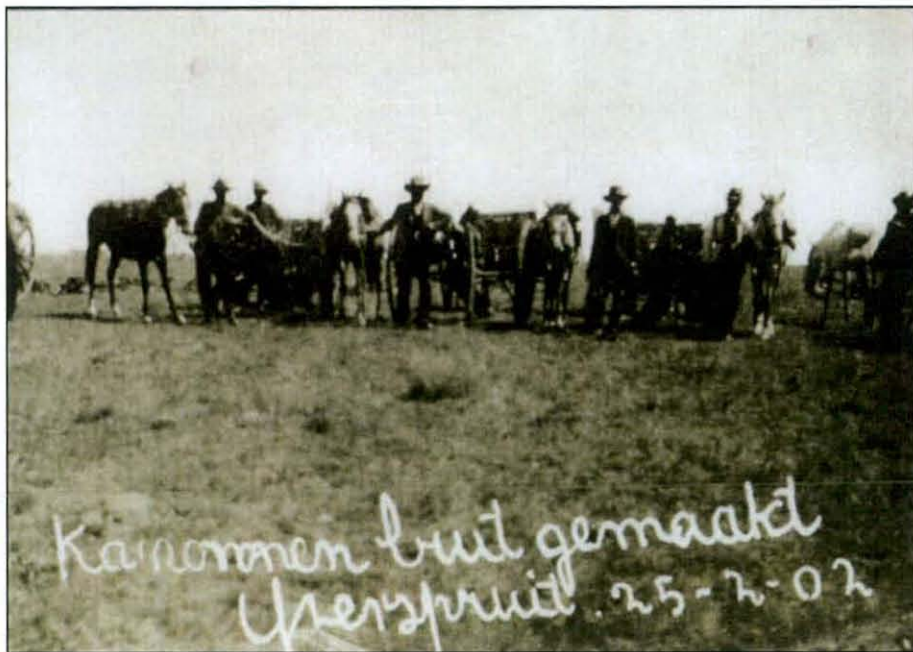 Kanonnen buit gemaakt
Yserspruit. 25-2-02